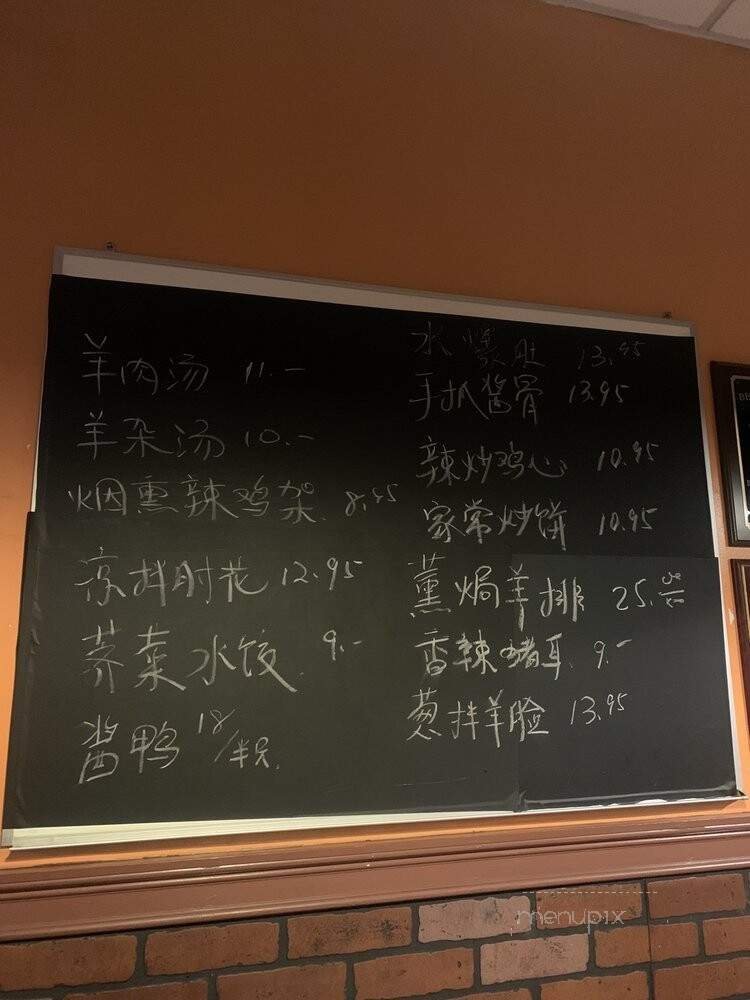 羊肉汤 11.-
羊杂汤 10.-
烟熏辣鸡架. 8.95
凉拌肘花 12.95
荠菜水饺. 9.-
酱鸭 18/半只.
水爆肚 13.95
手抓酱骨 13.95
辣炒鸡心 10.95
家常炒饼 10.95
薰焗羊排 25.
香辣猪耳. 9.-
葱拌羊脸 13.95
menupix